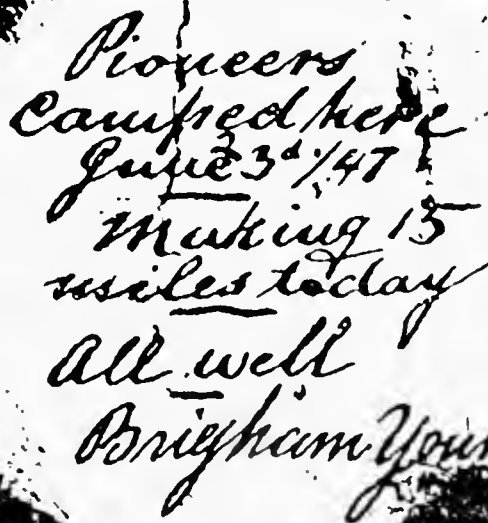 Pioneers
Camped here
June 3d/47
Making 15
miles today
All well
Brigham Youn